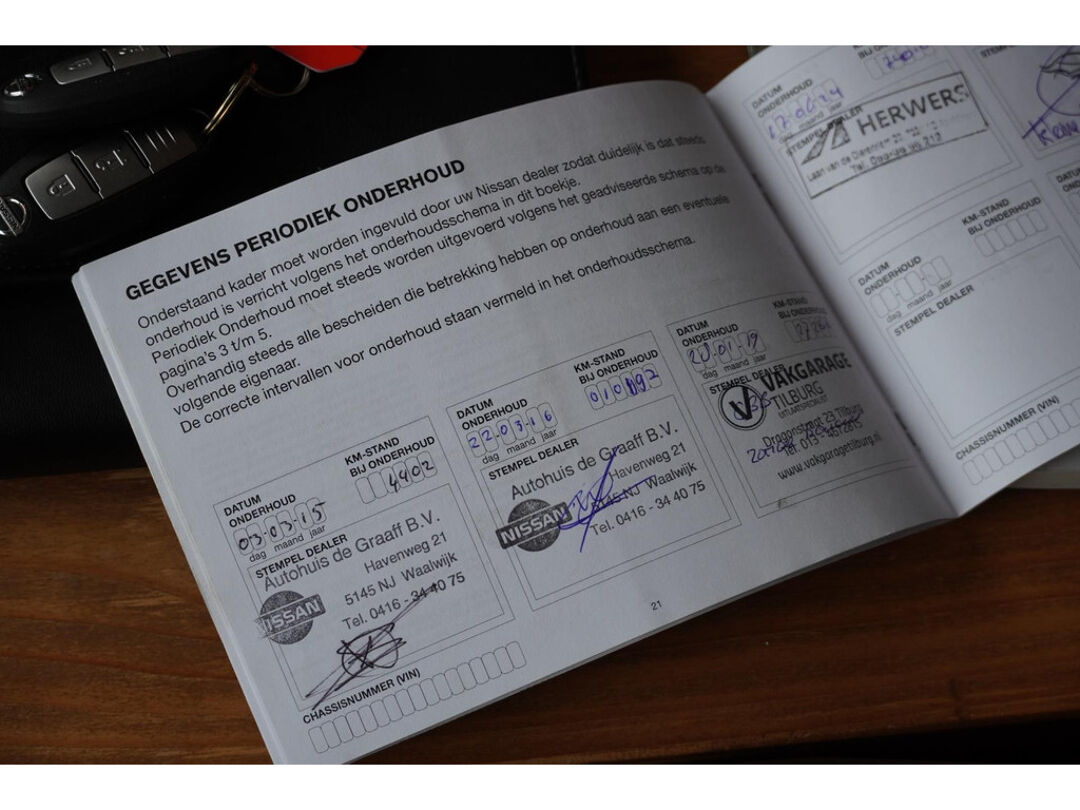 GEGEVENS PERIODIEK ONDERHOUD
Onderstaand kader moet worden ingevuld door uw Nissan dealer zodat duidelijk is dat steeds
onderhoud is verricht volgens het onderhoudsschema in dit boekje.
Periodiek Onderhoud moet steeds worden uitgevoerd volgens het geadviseerde schema op de
pagina's 3 t/m 5.
Overhandig steeds alle bescheiden die betrekking hebben op onderhoud aan een eventuele
volgende eigenaar.
De correcte intervallen voor onderhoud staan vermeld in het onderhoudsschema.
DATUM
ONDERHOUD
KM-STAND
BIJ ONDERHOUD
03-03-15
4402
dag maand jaar
STEMPEL DEALER
Autohuis de Graaff B.V.
Havenweg 21
5145 NJ Waalwijk
Tel. 0416 - 34 40 75
NISSAN
CHASSISNUMMER (VIN)
DATUM
ONDERHOUD
KM-STAND
BIJ ONDERHOUD
22-03-16
dag maand jaar
STEMPEL DEALER
Autohuis de Graaff B.V.
Havenweg 21
5145 NJ Waalwijk
Tel. 0416 - 34 40 75
NISSAN
DATUM
ONDERHOUD
KM-STAND
BIJ ONDERHOUD
28-01-19
dag maand jaar
STEMPEL DEALER
VAKGARAGE
TILBURG
Dragonstraat 23 Tilburg
www.vakgaragetilburg.nl
21
DATUM
ONDERHOUD
KM-STAND
BIJ ONDERHOUD
dag maand jaar
STEMPEL DEALER
HERWERS
STEMPEL DEALER
DATUM
ONDERHOUD
KM-STAND
BIJ ONDERHOUD
dag maand jaar
STEMPEL DEALER
CHASSISNUMMER (VIN)